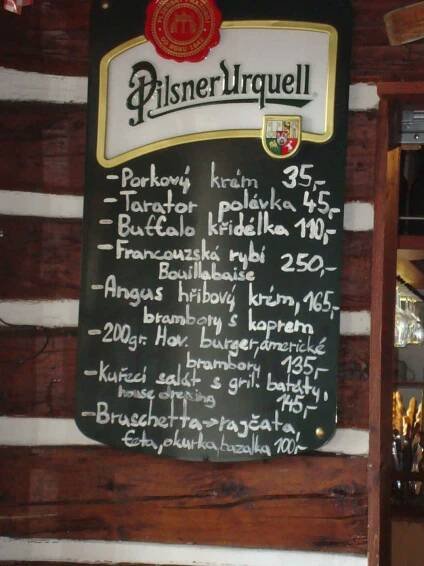 Pilsner Urquell
-Porkový krém 35,-
-Tarator polávka 45,-
-Buffalo křidélka 110,-
-Francouzská rybí
Bouillabaise 250,-
-Angus hřibový krém, 165,-
brambory s koprem
-200gr. Hov. burger, americké
brambory 135,-
-Kuřecí salát s gril. baráty,
house dresing 145,-
-Bruschetta->rajčata
feta, okurka, bazalka 100,-